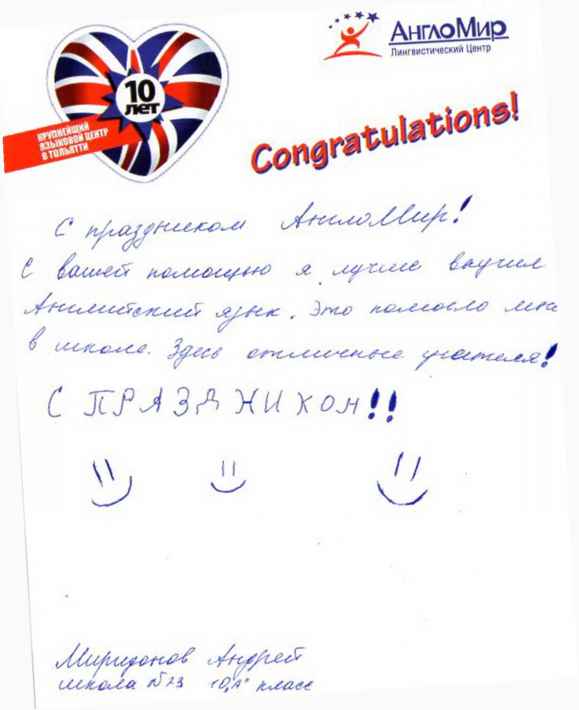 10
ЛЕТ
КРУПНЕЙШИЙ
ЯЗЫКОВОЙ ЦЕНТР
В ТОЛЬЯТТИ
АнглоМир
Лингвистический Центр
Congratulations!
С праздником АнглоМир!
С вашей помощью я лучше выучил
Английский язык. Это помогло мне
в школе. Здесь отличные учителя!
С ПРАЗДНИКОМ!!
Андрей
школа 10 "А" класс